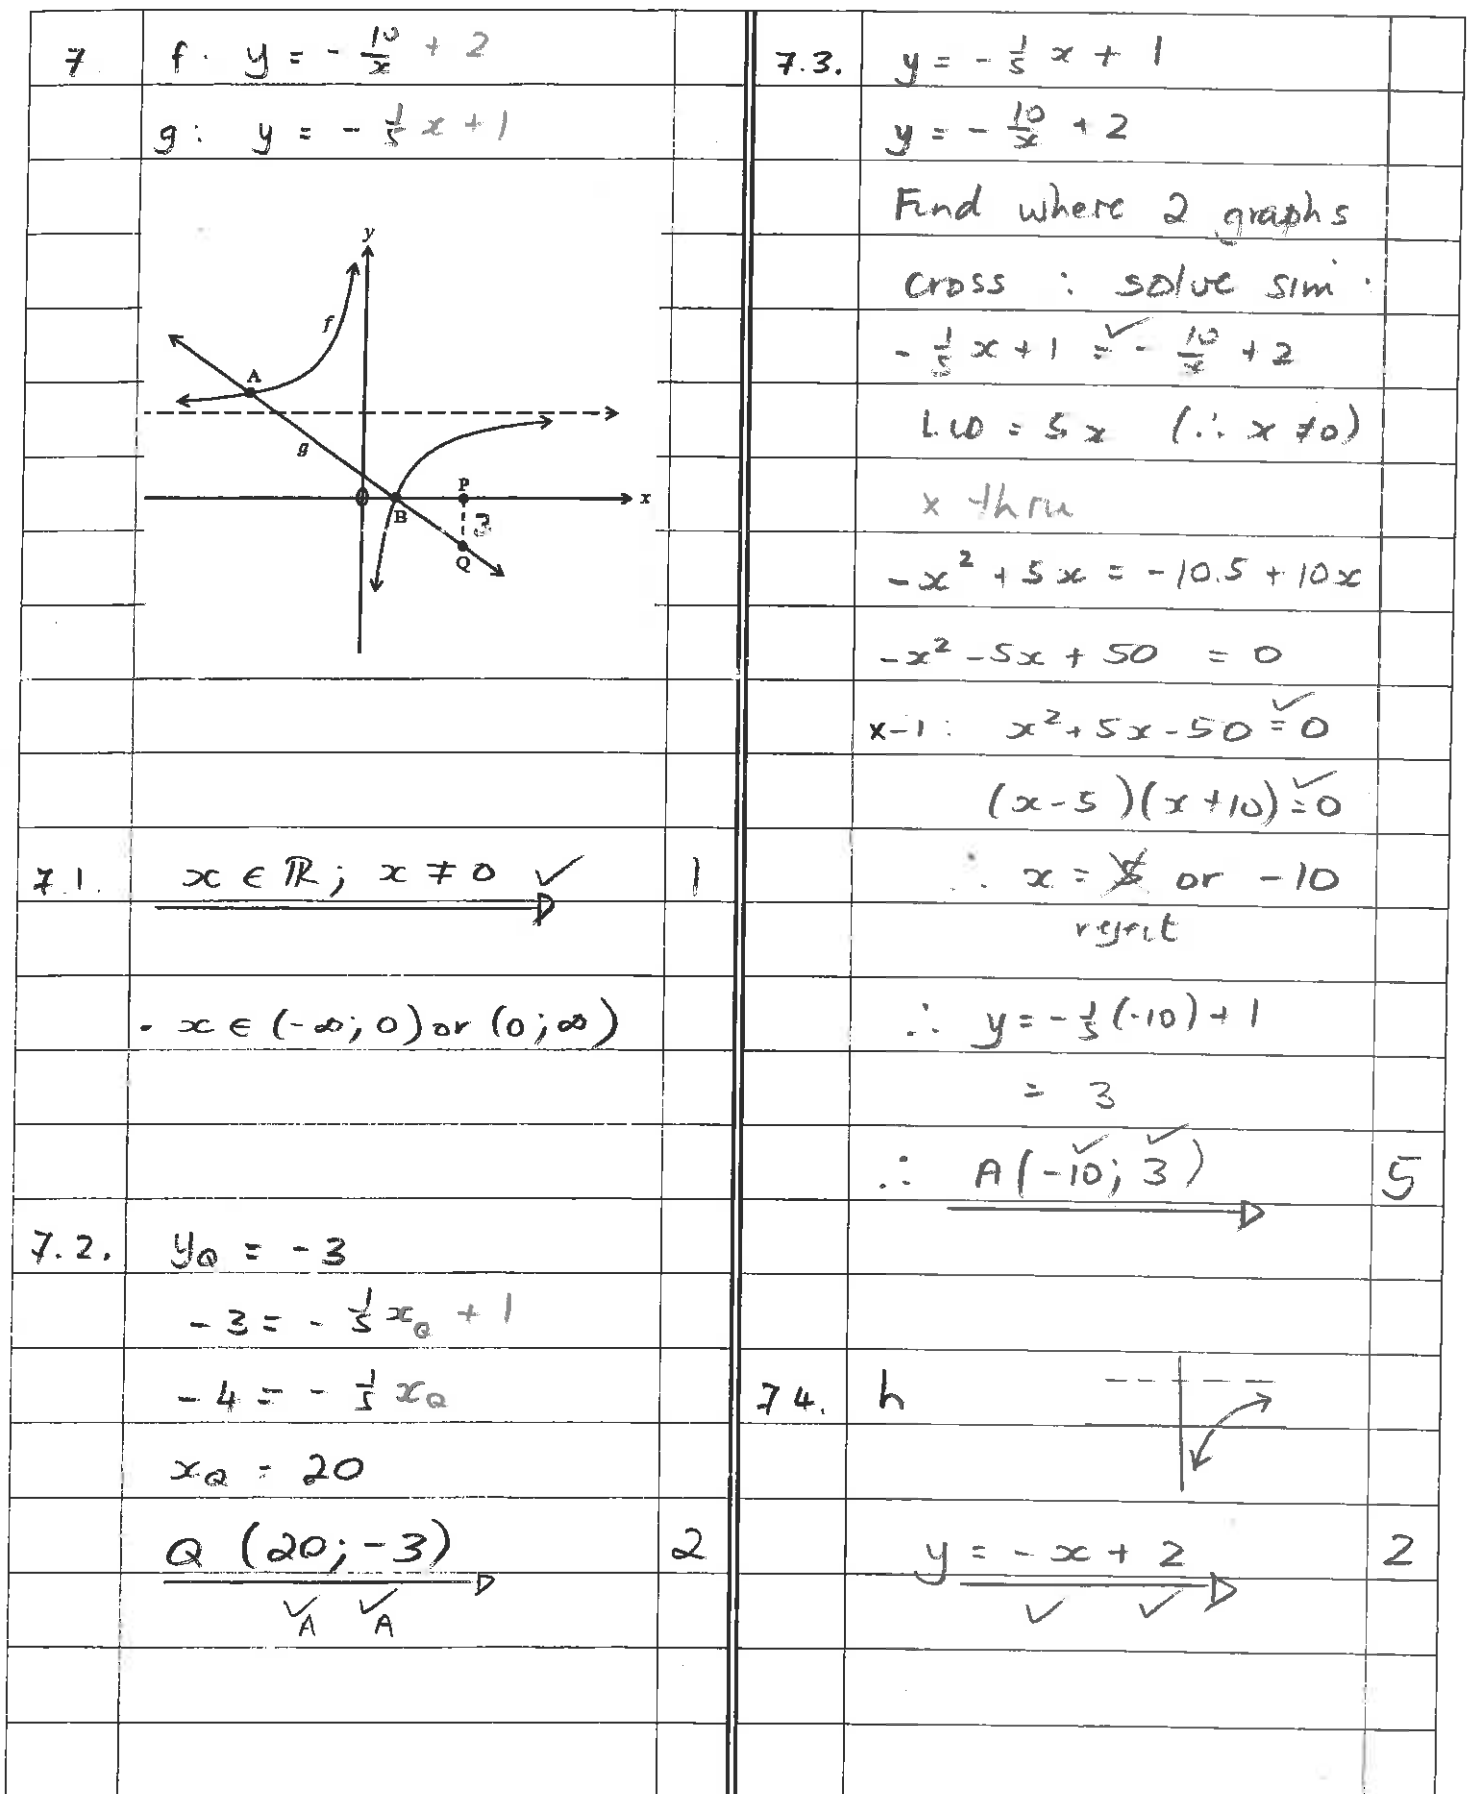 7 f. y = - 10/x + 2
g: y = - 1/5 x + 1
y
f
A
g
P
x
0
B
3
Q
7.1. x ∈ ℝ; x ≠ 0 ✓ 1
• x ∈ (-∞; 0) or (0; ∞)
7.2. yQ = -3
-3 = - 1/5 xQ + 1
-4 = - 1/5 xQ
xQ = 20
Q (20; -3) 2
✓A ✓A
7.3. y = - 1/5 x + 1
y = - 10/x + 2
Find where 2 graphs
cross : solve sim.
- 1/5 x + 1 =✓ - 10/x + 2
LCD = 5x (∴ x ≠ 0)
x thru
-x² + 5x = -10.5 + 10x
-x² - 5x + 50 = 0
x-1: x² + 5x - 50 =✓ 0
(x-5)(x+10) =✓ 0
∴ x = 5 or -10
reject
∴ y = - 1/5 (-10) + 1
= 3
∴ A(-10✓; 3✓) 5
7.4. h
y = -x + 2 2
✓ ✓